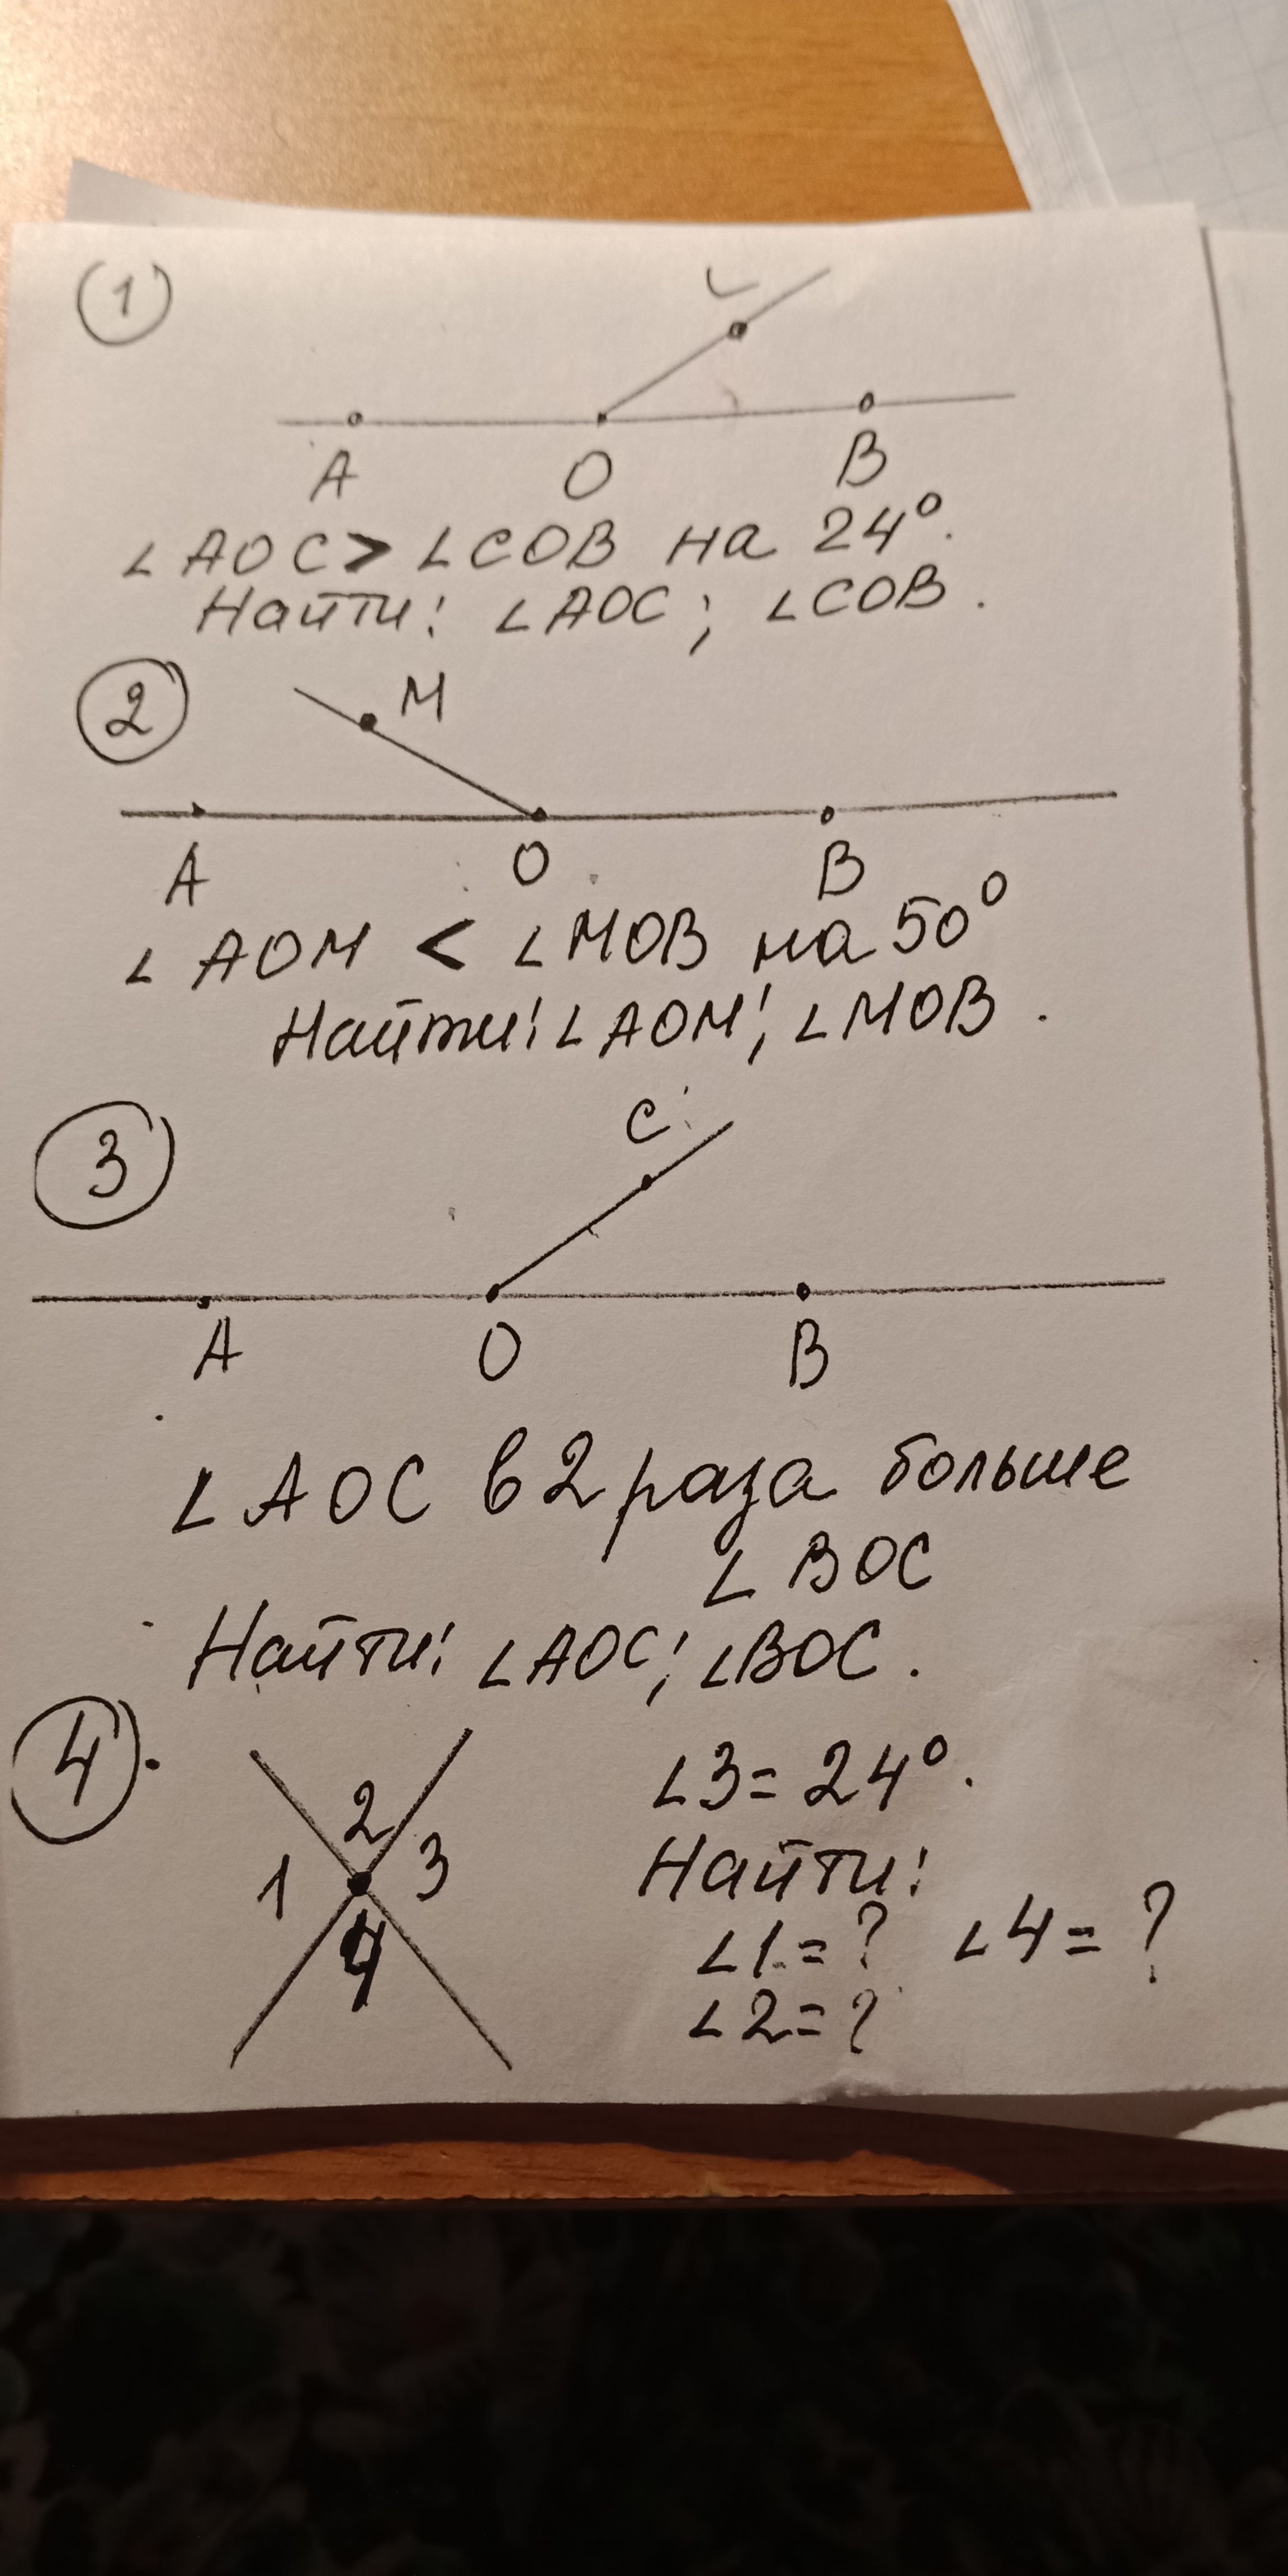 1
C
A O B
∠AOC > ∠COB на 24°.
Найти: ∠AOC; ∠COB.
2
M
A O B
∠AOM < ∠MOB на 50°
Найти: ∠AOM; ∠MOB.
3
C
A O B
∠AOC в 2 раза больше
∠BOC
Найти: ∠AOC; ∠BOC.
4.
2
1 3
4
∠3 = 24°.
Найти:
∠1 = ? ∠4 = ?
∠2 = ?